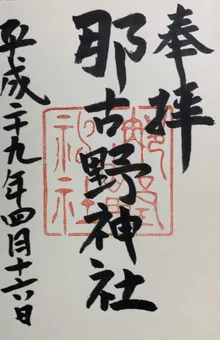 奉拝
那古野神社
平成二十九年四月十六日